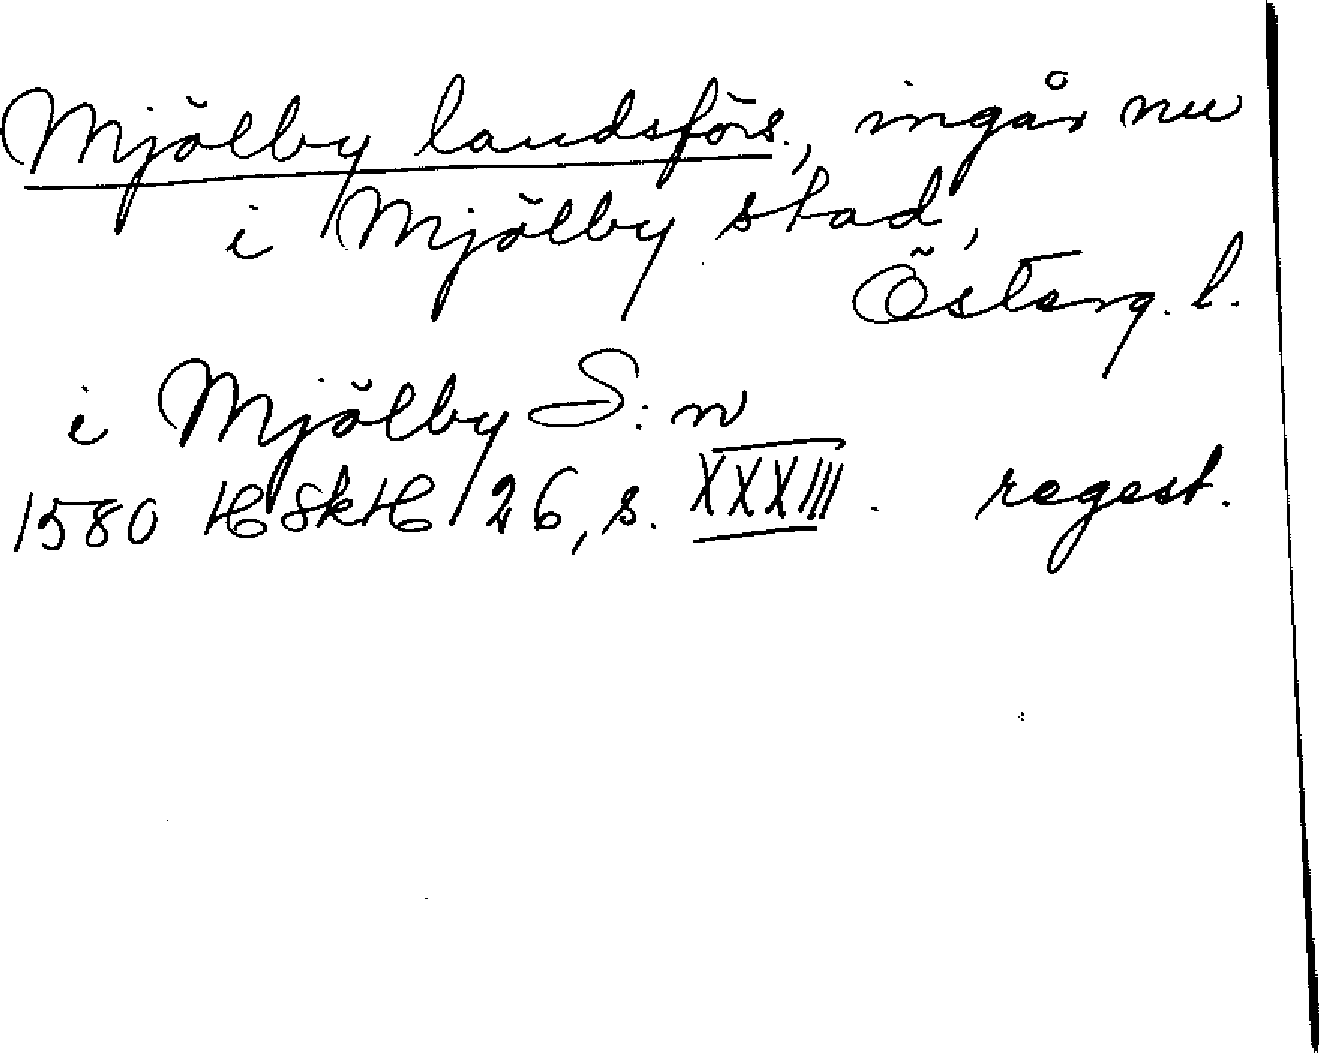 Mjölby landsförs., ingår nu
i Mjölby stad,
Österg. l.
i Mjölby S:n
1580 HSkH 26, s. XXXIII. regest.